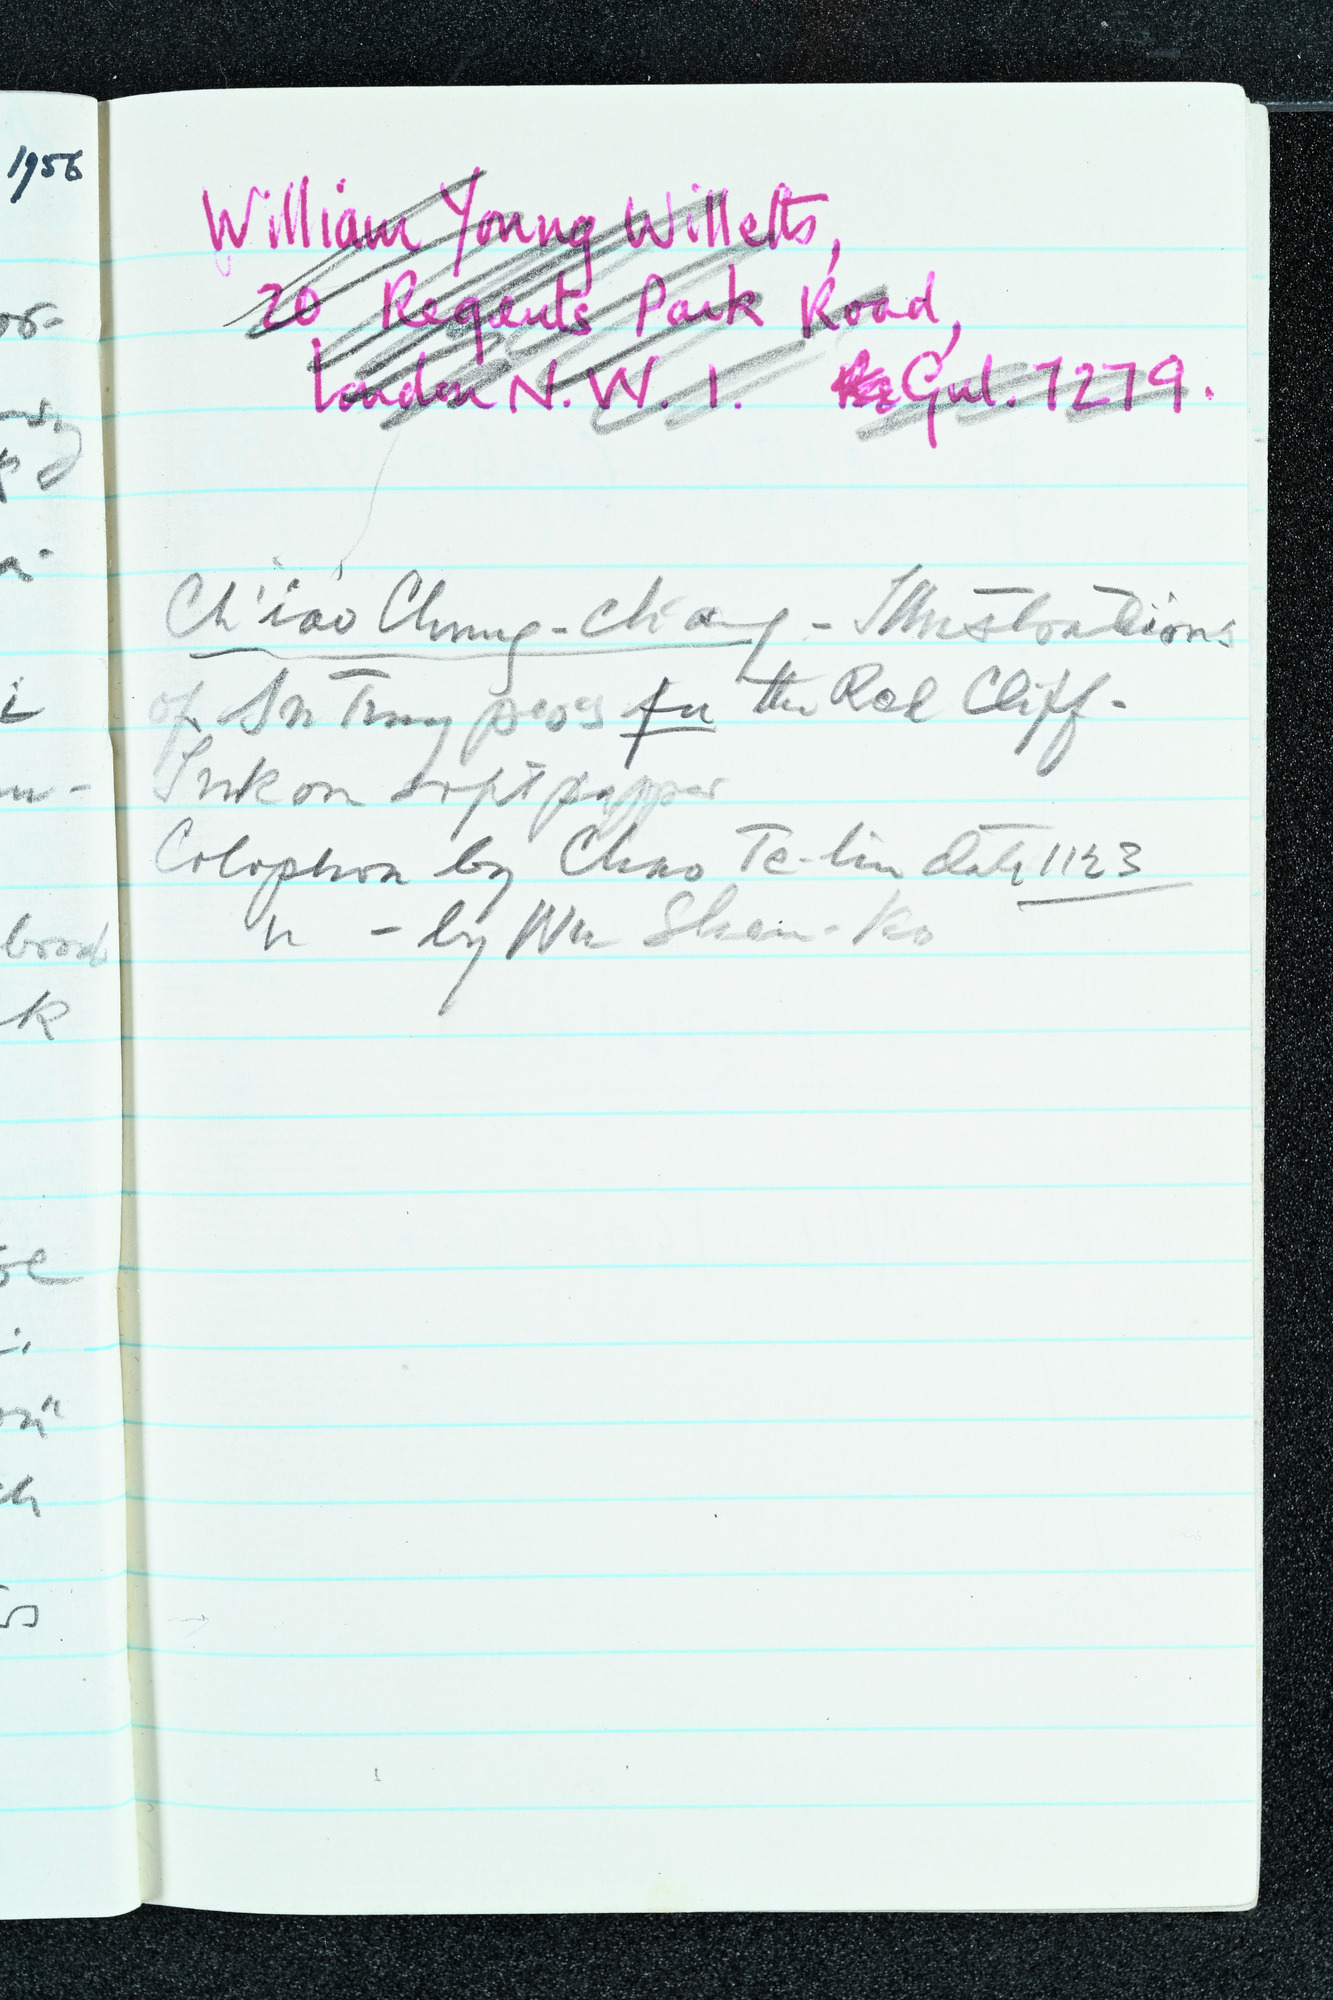 1956
William Young Willetts,
20 Regents Park Road,
London N.W. 1. Gul. 7279.
Ch'iao Chung-chang - Illustrations
of Su Tung poes fu the Red Cliff-
Ink on soft papper
Colophon by Chao Te-lin date 1123
" - by Wu Shan-Ko